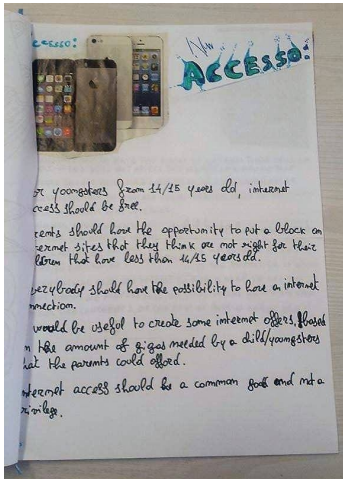 ccesso:
ACCESSO:
or youngsters from 14/15 years old, internet
ccess should be free.
rents should have the opportunity to put a block on
ternet sites that they think are not right for their
ldren that have less than 14/15 years old.
verybody should have the possibility to have an internet
nnection.
would be useful to create some internet offers, based
n the amount of gigas needed by a child/youngsters
hat the parents could afford.
nternet access should be a common good and not a
rivilege.